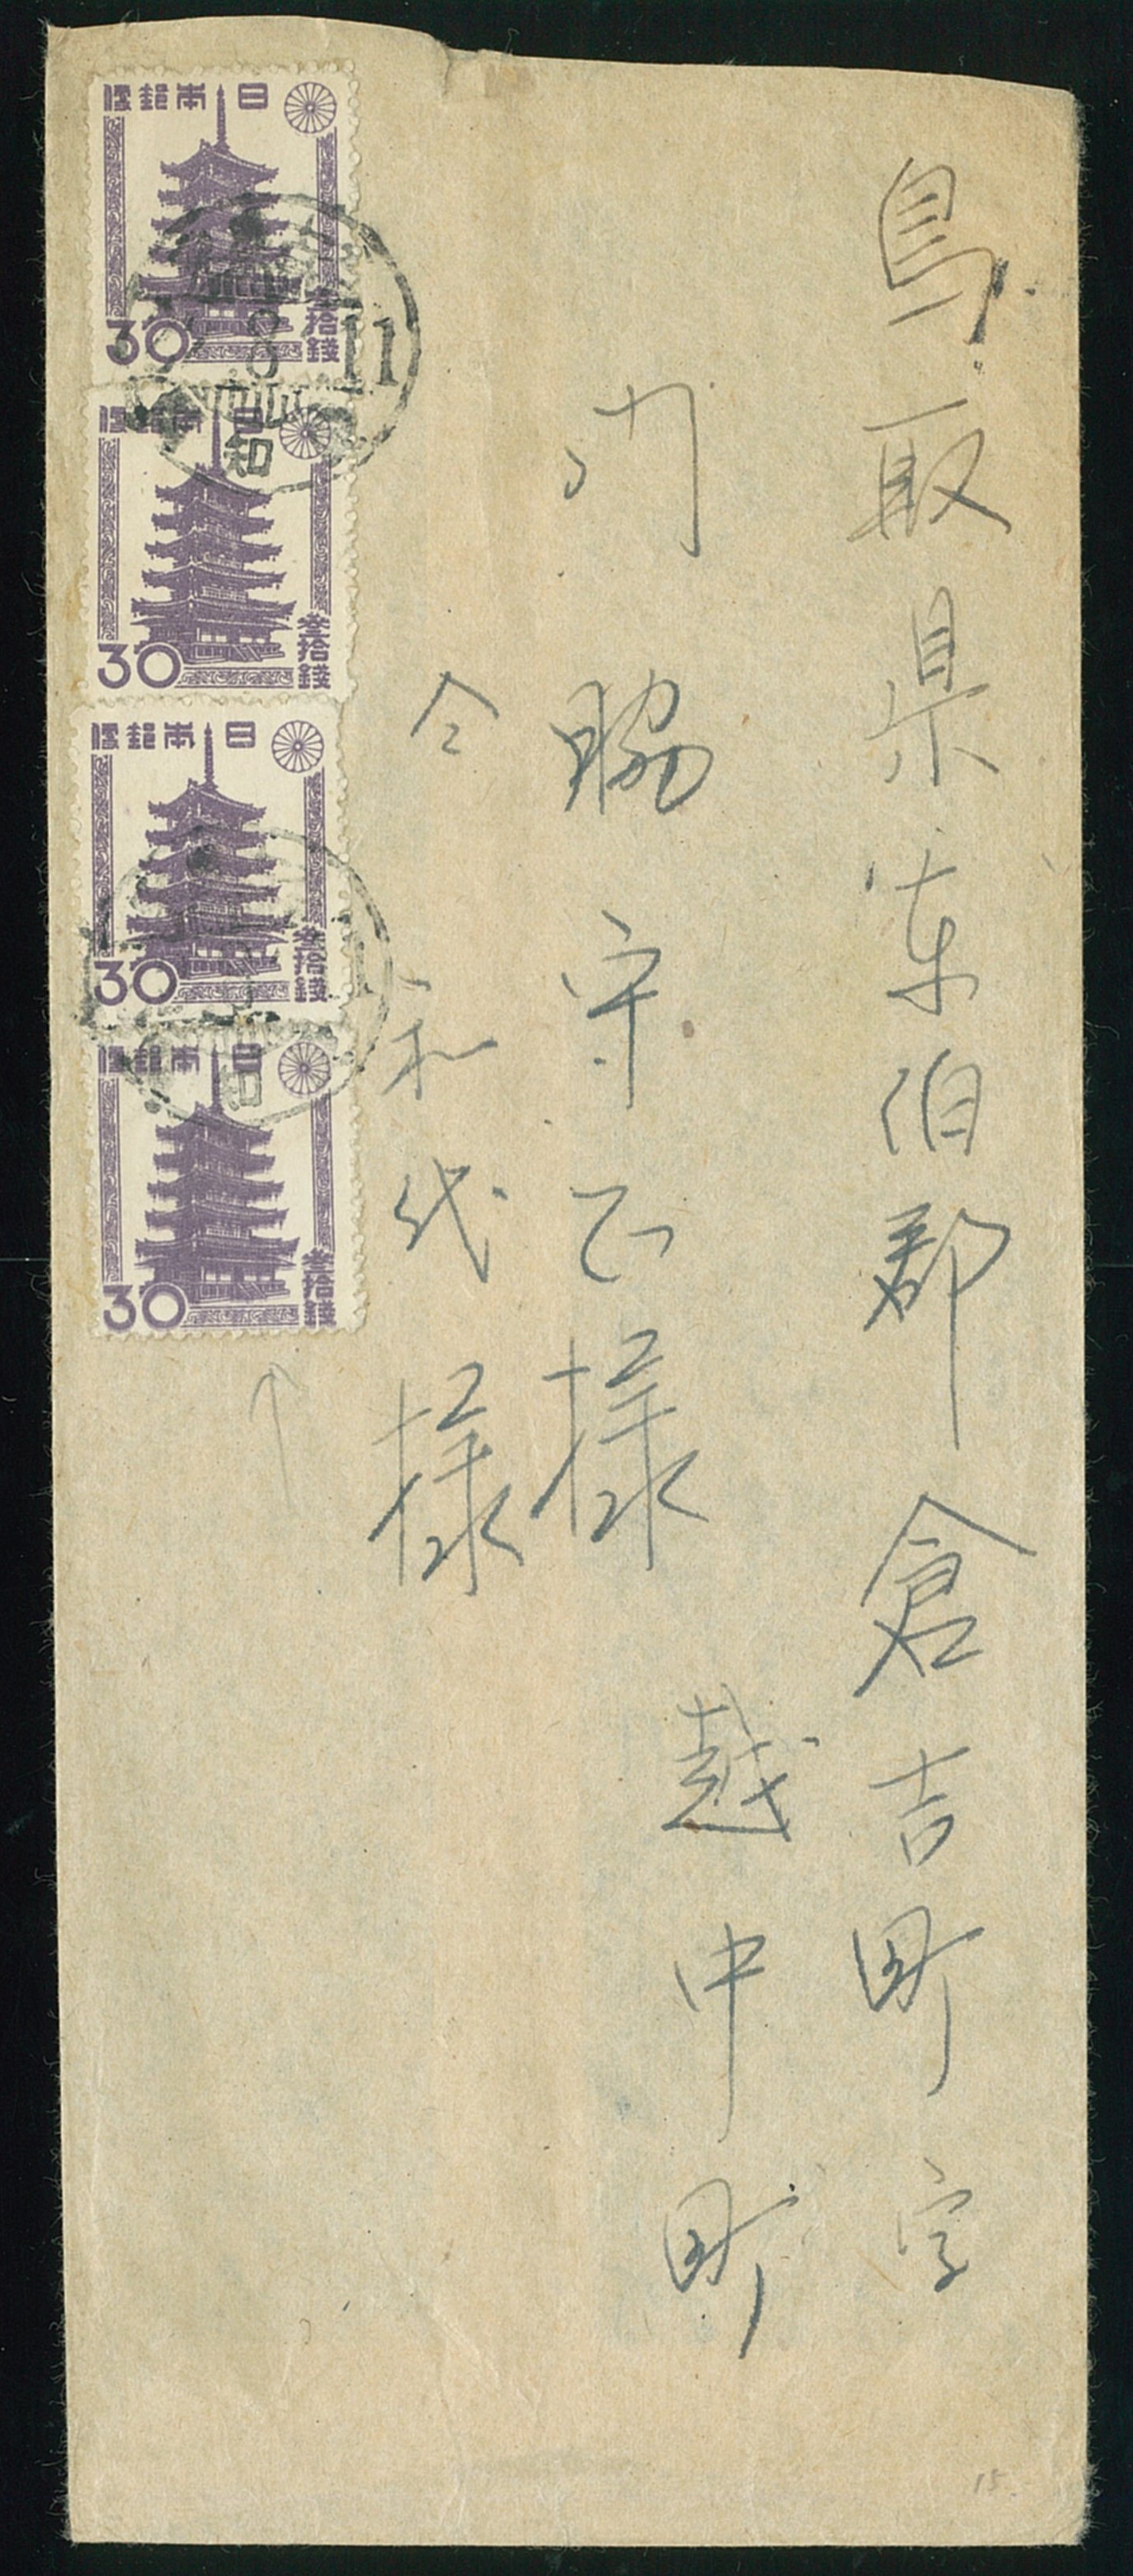 鳥取県東伯郡倉吉町字
越中町
門脇守正様
仝 和代様
日本郵便
参拾錢
30
8 11
知
日本郵便
参拾錢
30
日本郵便
参拾錢
30
日本郵便
参拾錢
30
知
15